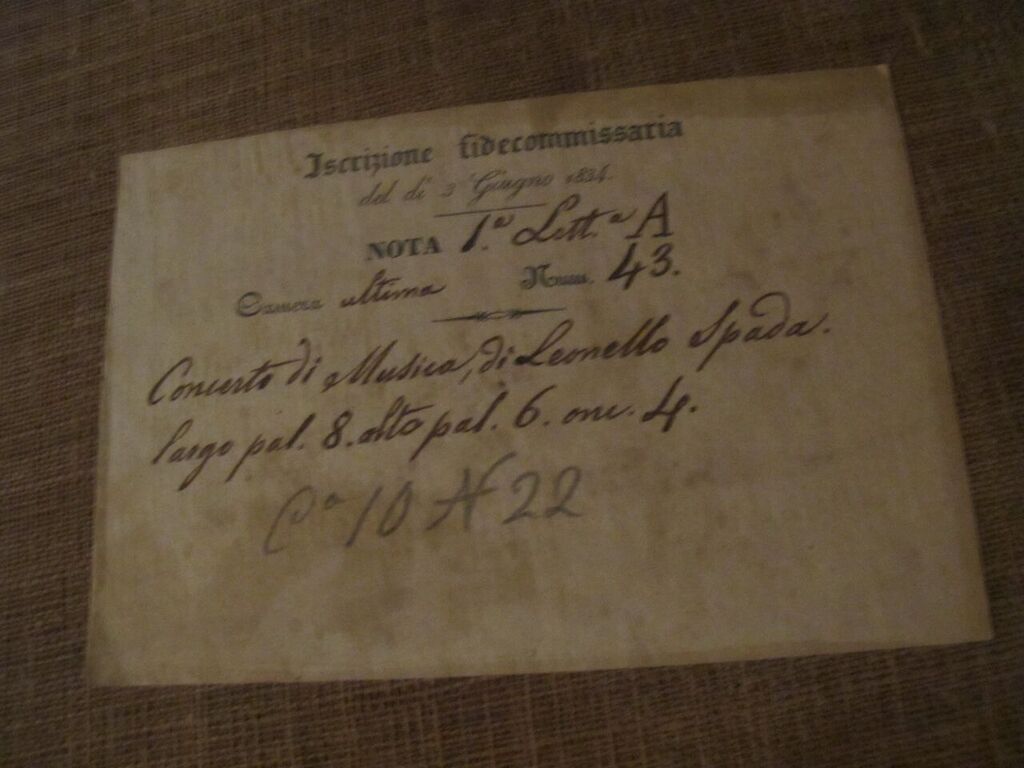 Iscrizione fidecommissaria
del dì 3 Giugno 1834.
NOTA 1.ª Lett.ª A
Camera ultima Num. 43.
Concerto di Musica, di Leonello Spada.
largo pal. 8. alto pal. 6. onc. 4.
Cª 10 N 22